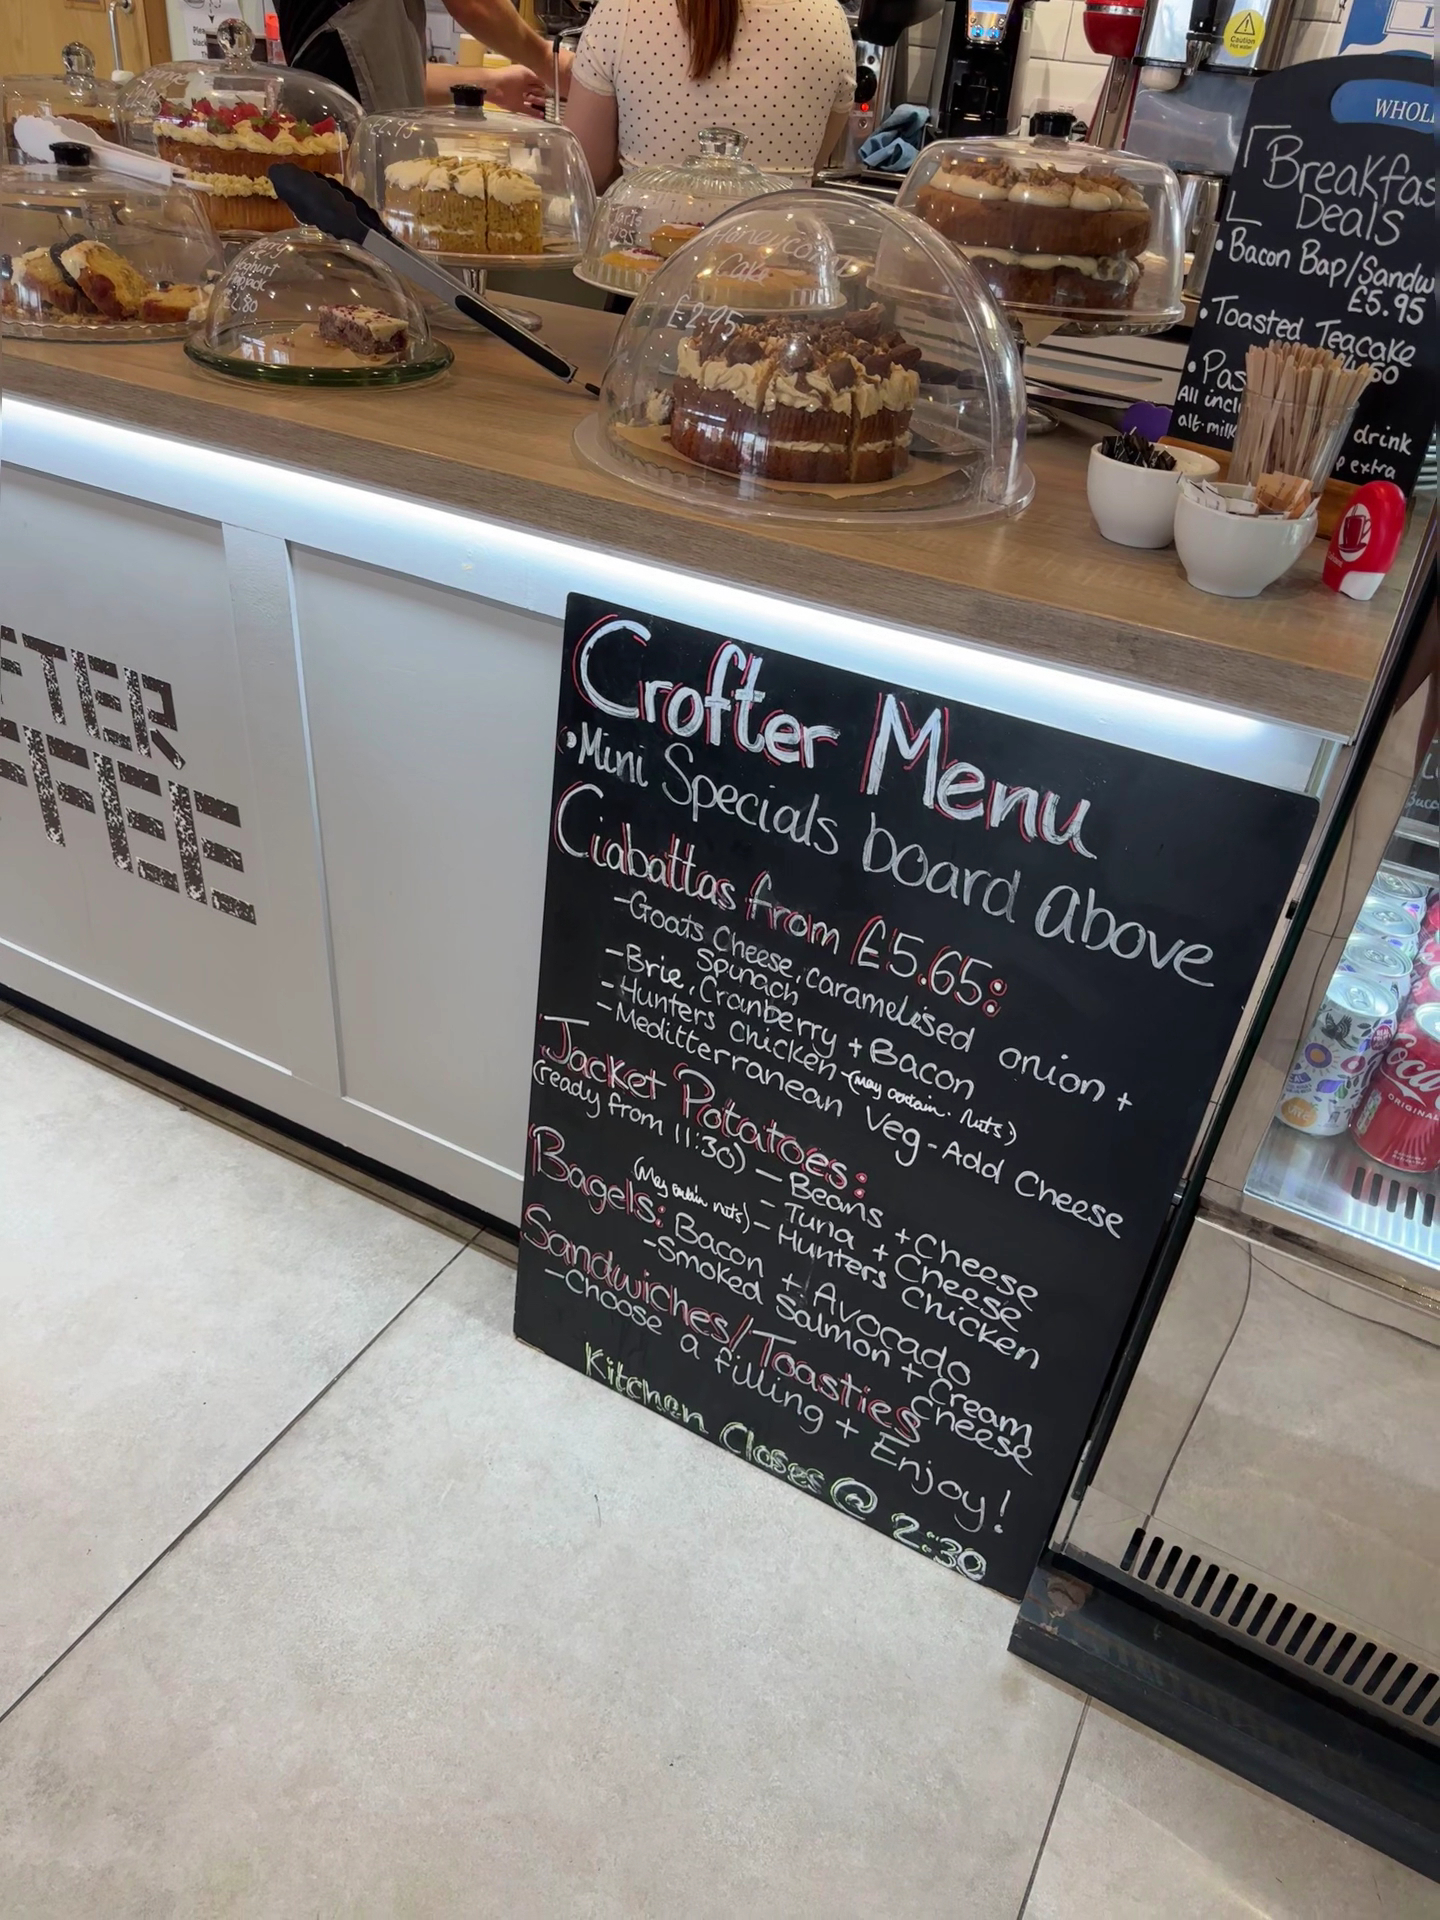 Caution
Hot water
£2.95
Honeycomb
Cake
£2.95
Yoghurt
£2.80
WHOL
Breakfas
Deals
• Bacon Bap/Sandw
£5.95
• Toasted Teacake
• Pas
All incl
alt. milk
drink
extra
FTER
FFEE
Crofter Menu
• Mini Specials board above
Ciabattas from £5.65:
- Goats Cheese, caramelised onion +
Spinach
- Brie, Cranberry + Bacon
- Hunters Chicken - (May contain nuts)
- Meditterranean Veg - Add Cheese
Jacket Potatoes:
(ready from 11:30) - Beans + Cheese
- Tuna + Cheese
(May contain nuts) - Hunters Chicken
Bagels: Bacon + Avocado
- Smoked Salmon + Cream
Cheese
Sandwiches/Toasties
- Choose a filling + Enjoy!
Kitchen Closes @ 2:30
Coca
ORIGINAL